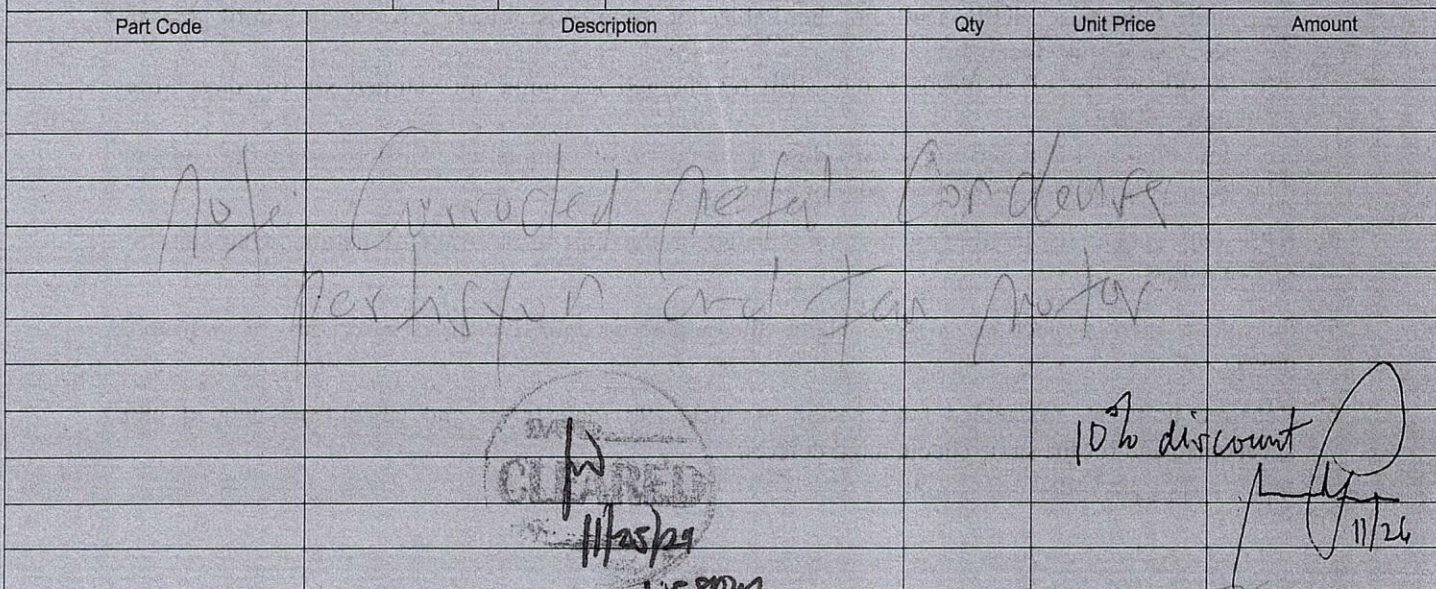 Part Code Description Qty Unit Price Amount
Note: Corroded metal Condenser
partisyun and fan motor
10% discount
CLEARED
11/25/24
11/26